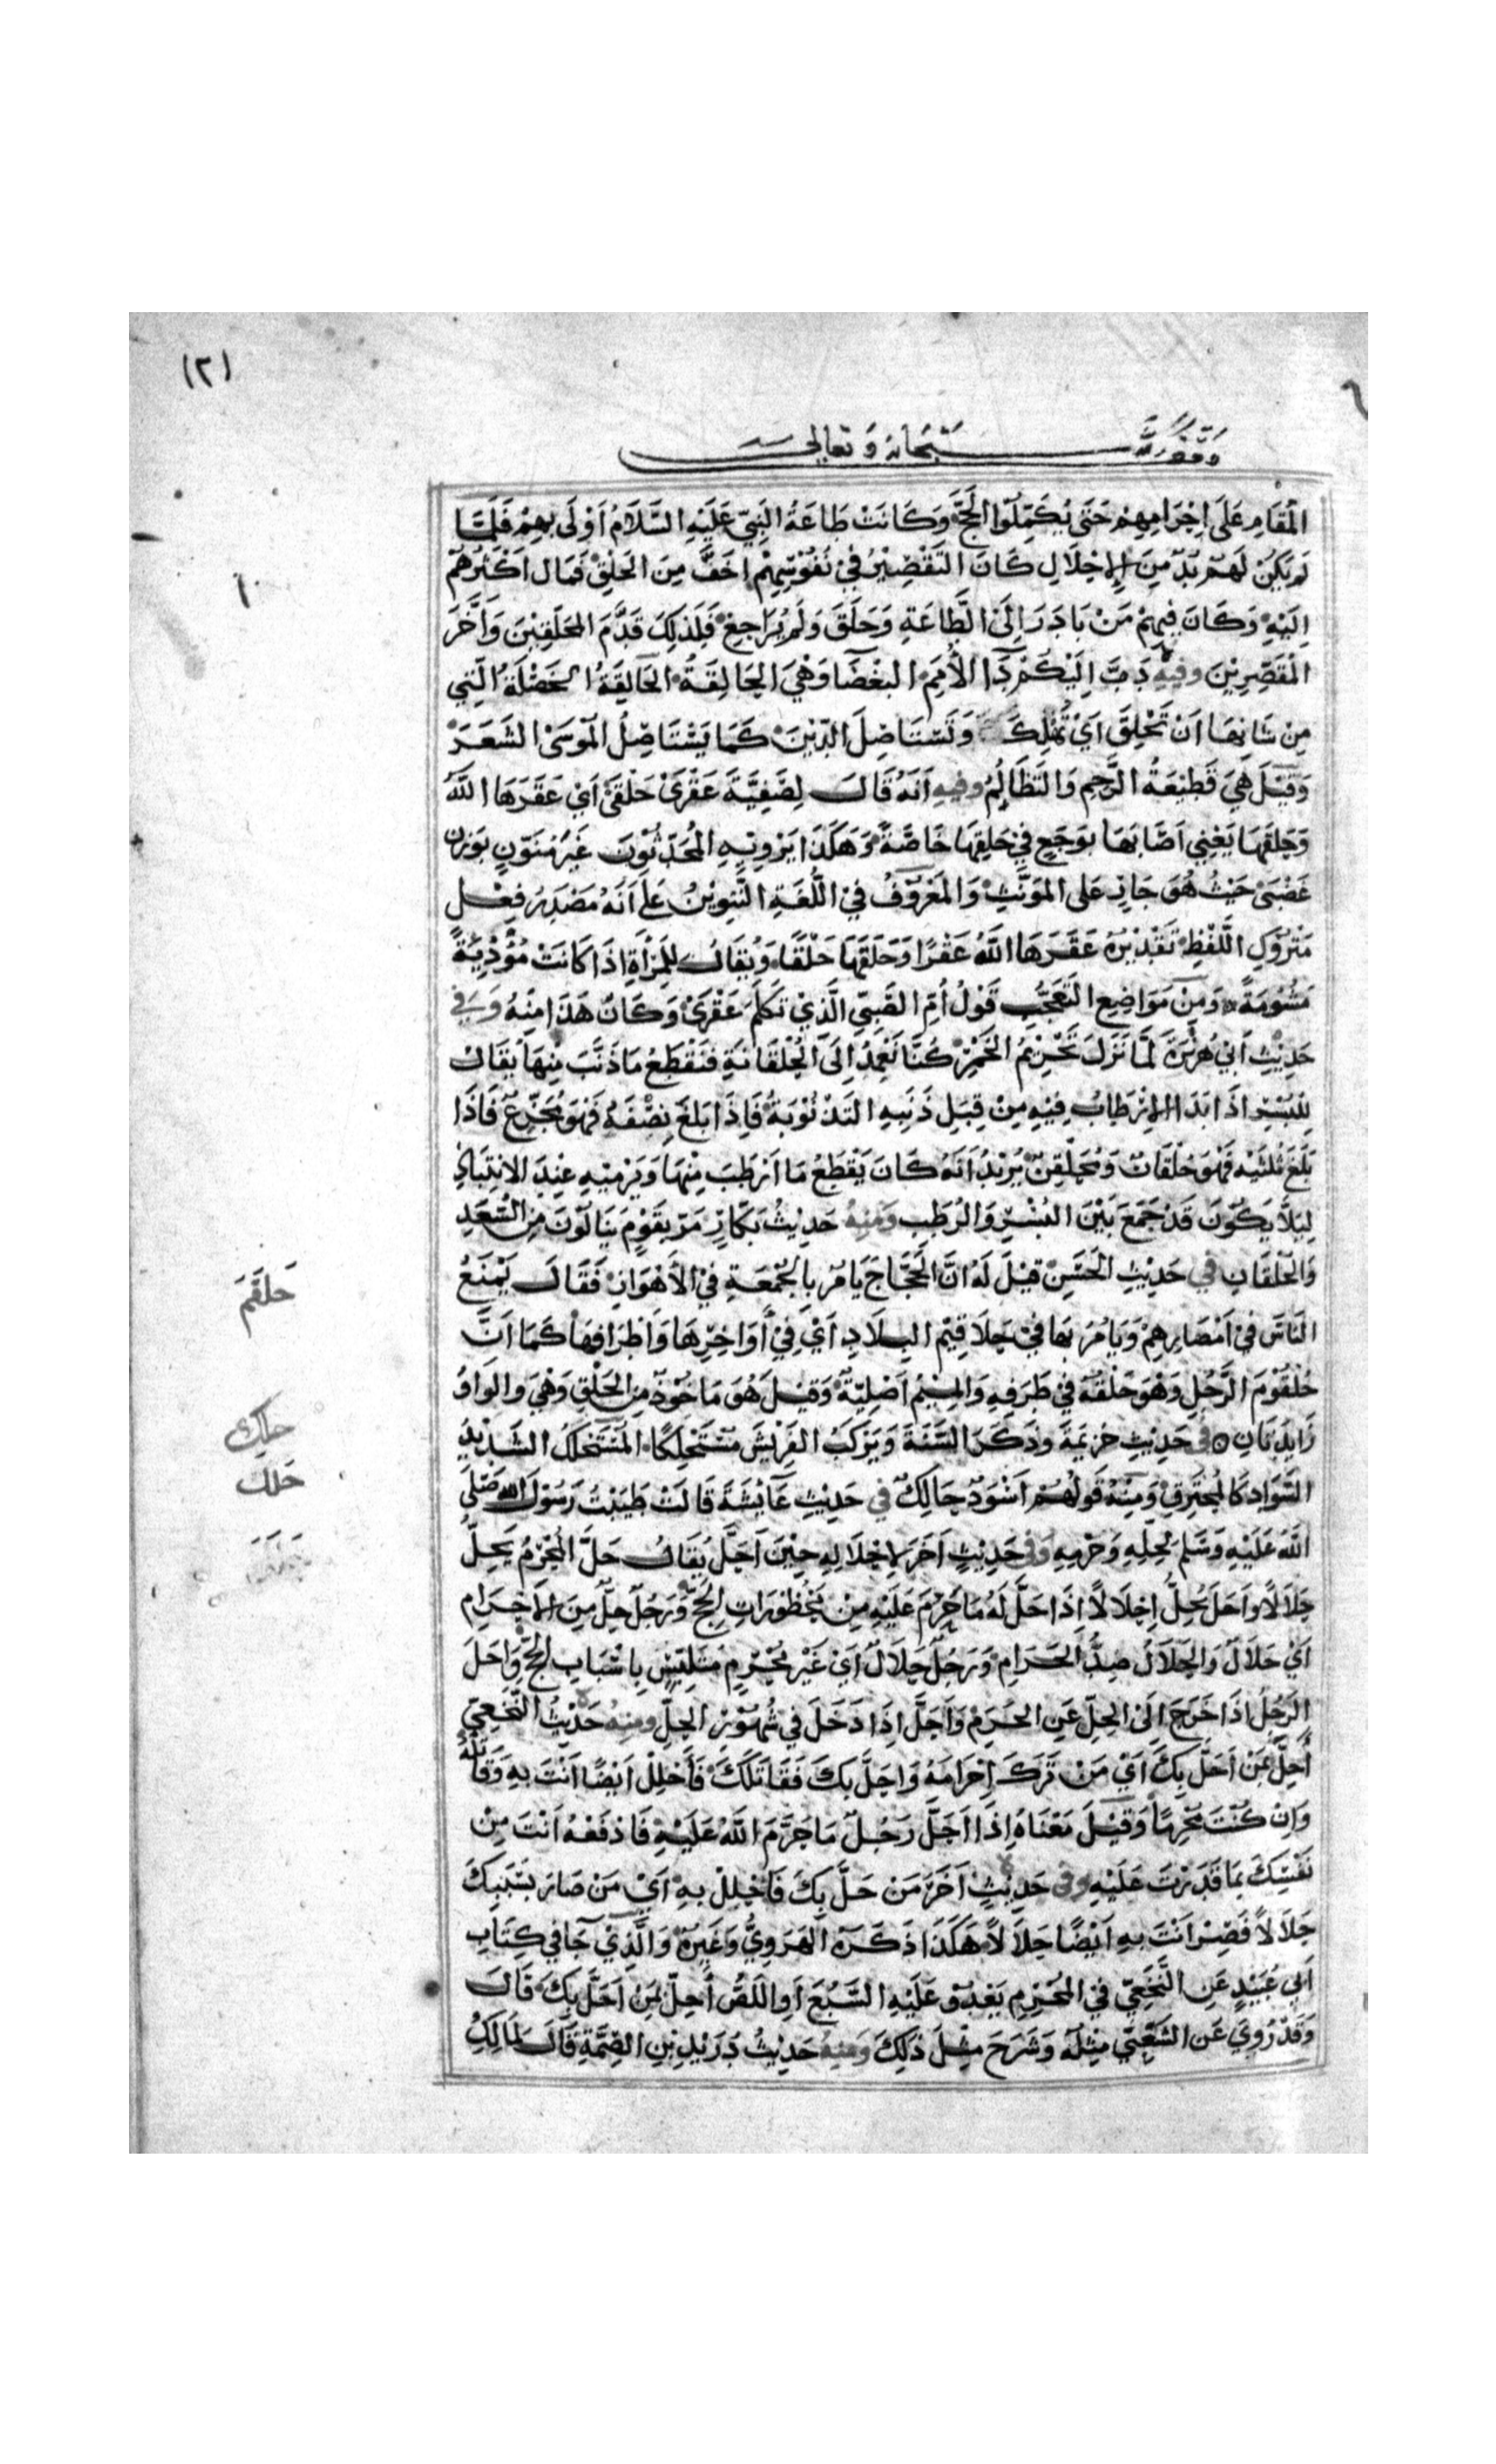 (٢)
وقف لله سبحانه وتعالى
المقام على احرامهم حتى يكملوا الحج وكانت طاعة النبي عليه السلام اولى بهم فلما
لم يكن لهم بد من الاحلال كان التقصير في نفوسهم اخف من الحلق فمال اكثرهم
١٠
اليه وكان فيهم من بادر الى الطاعة وحلق ولم يراجع فلذلك قدم المحلقين واخر
المقصرين وفيه دب اليكم دآ الامم البغضا وهي الحالقة الحالقة الخصلة التي
من شانها ان تحلق اي تهلك وتستاصل الدين كما يستاصل الموسى الشعر
وقيل هي قطيعة الرحم والتظالم وفيه انه قال لصفية عقرى حلقى اي عقرها الله
وحلقها يعني اصابها بوجع في حلقها خاصة وهكذا يرويه المحدثون غير منون بوزن
غضبى حيث هو جار على المونث والمعروف في اللغة التنوين على انه مصدر فعل
متروك اللفظ تقديره عقرها الله عقرا وحلقها حلقا ويقال للمراة اذا كانت مؤذية
مشومة ومن مواضع التعجب قول ام الصبي الذي تكلم عقرى وكان هذا منه وفي
حديث ابي هريرة لما نزل تحريم الخمر كنا نعمد الى الحلقانة فنقطع ما ذنب منها يقال
للبسر اذا بدا الارطاب فيه من قبل ذنبه التذنوبة فاذا بلغ نصفه فهو مجزع فاذا
بلغ ثلثيه فهو حلقان ومحلقن يريد انه كان يقطع ما ارطب منها ويرميه عند الانتباذ
ليلا يكون قد جمع بين البسر والرطب ومنه حديث بكار مر بقوم ينالون من الثعد
والحلقان في حديث الحسن قيل له ان الحجاج يامر بالجمعة في الاهواز فقال يمنع
حلقم
الناس في امصارهم ويامر بها في حلاقيم البلاد اي في اواخرها واطرافها كما ان
حلقوم الرجل وهو حلقه في طرفه والميم اصلية وقيل هو ماخوذ من الحلق وهي والواو
زايدتان في حديث خزيمة وذكر السنة ويترك الفريش مستحلكا المستحلك الشديد
حلك
السواد كالمحترق ومنه قولهم اسود حالك في حديث عايشة قالت طيبت رسول الله صلى
حلل
الله عليه وسلم لحله وحرمه وفي حديث اخر لاحلاله حين احل يقال حل المحرم يحل
حلالا واحل يحل احلالا اذا حل له ما حرم عليه من محظورات الحج ورجل حل من الاحرام
اي حلال والحلال ضد الحرام ورجل حلال اي غير محرم متلبس باسباب الحج واحل
الرجل اذا خرج الى الحل عن الحرم واحل اذا دخل في شهور الحل ومنه حديث النخعي
احل بمن احل بك اي من ترك احرامه واحل بك فقاتلك فاحلل ايضا انت به وقاتله
وان كنت محرما وقيل معناه اذا احل رجل ما حرم الله عليه فادفعه انت من
نفسك بما قدرت عليه وفي حديث اخر من حل بك فاحلل به اي من صار بسببك
حلالا فصر انت به ايضا حلالا هكذا ذكره الهروي وغيره والذي جا في كتاب
ابي عبيد عن النخعي في المحرم يعدو عليه السبع او اللص احل بمن احل بك قال
وقد روي عن الشعبي مثله وشرح مثل ذلك ومنه حديث دريد بن الصمة قال لمالك